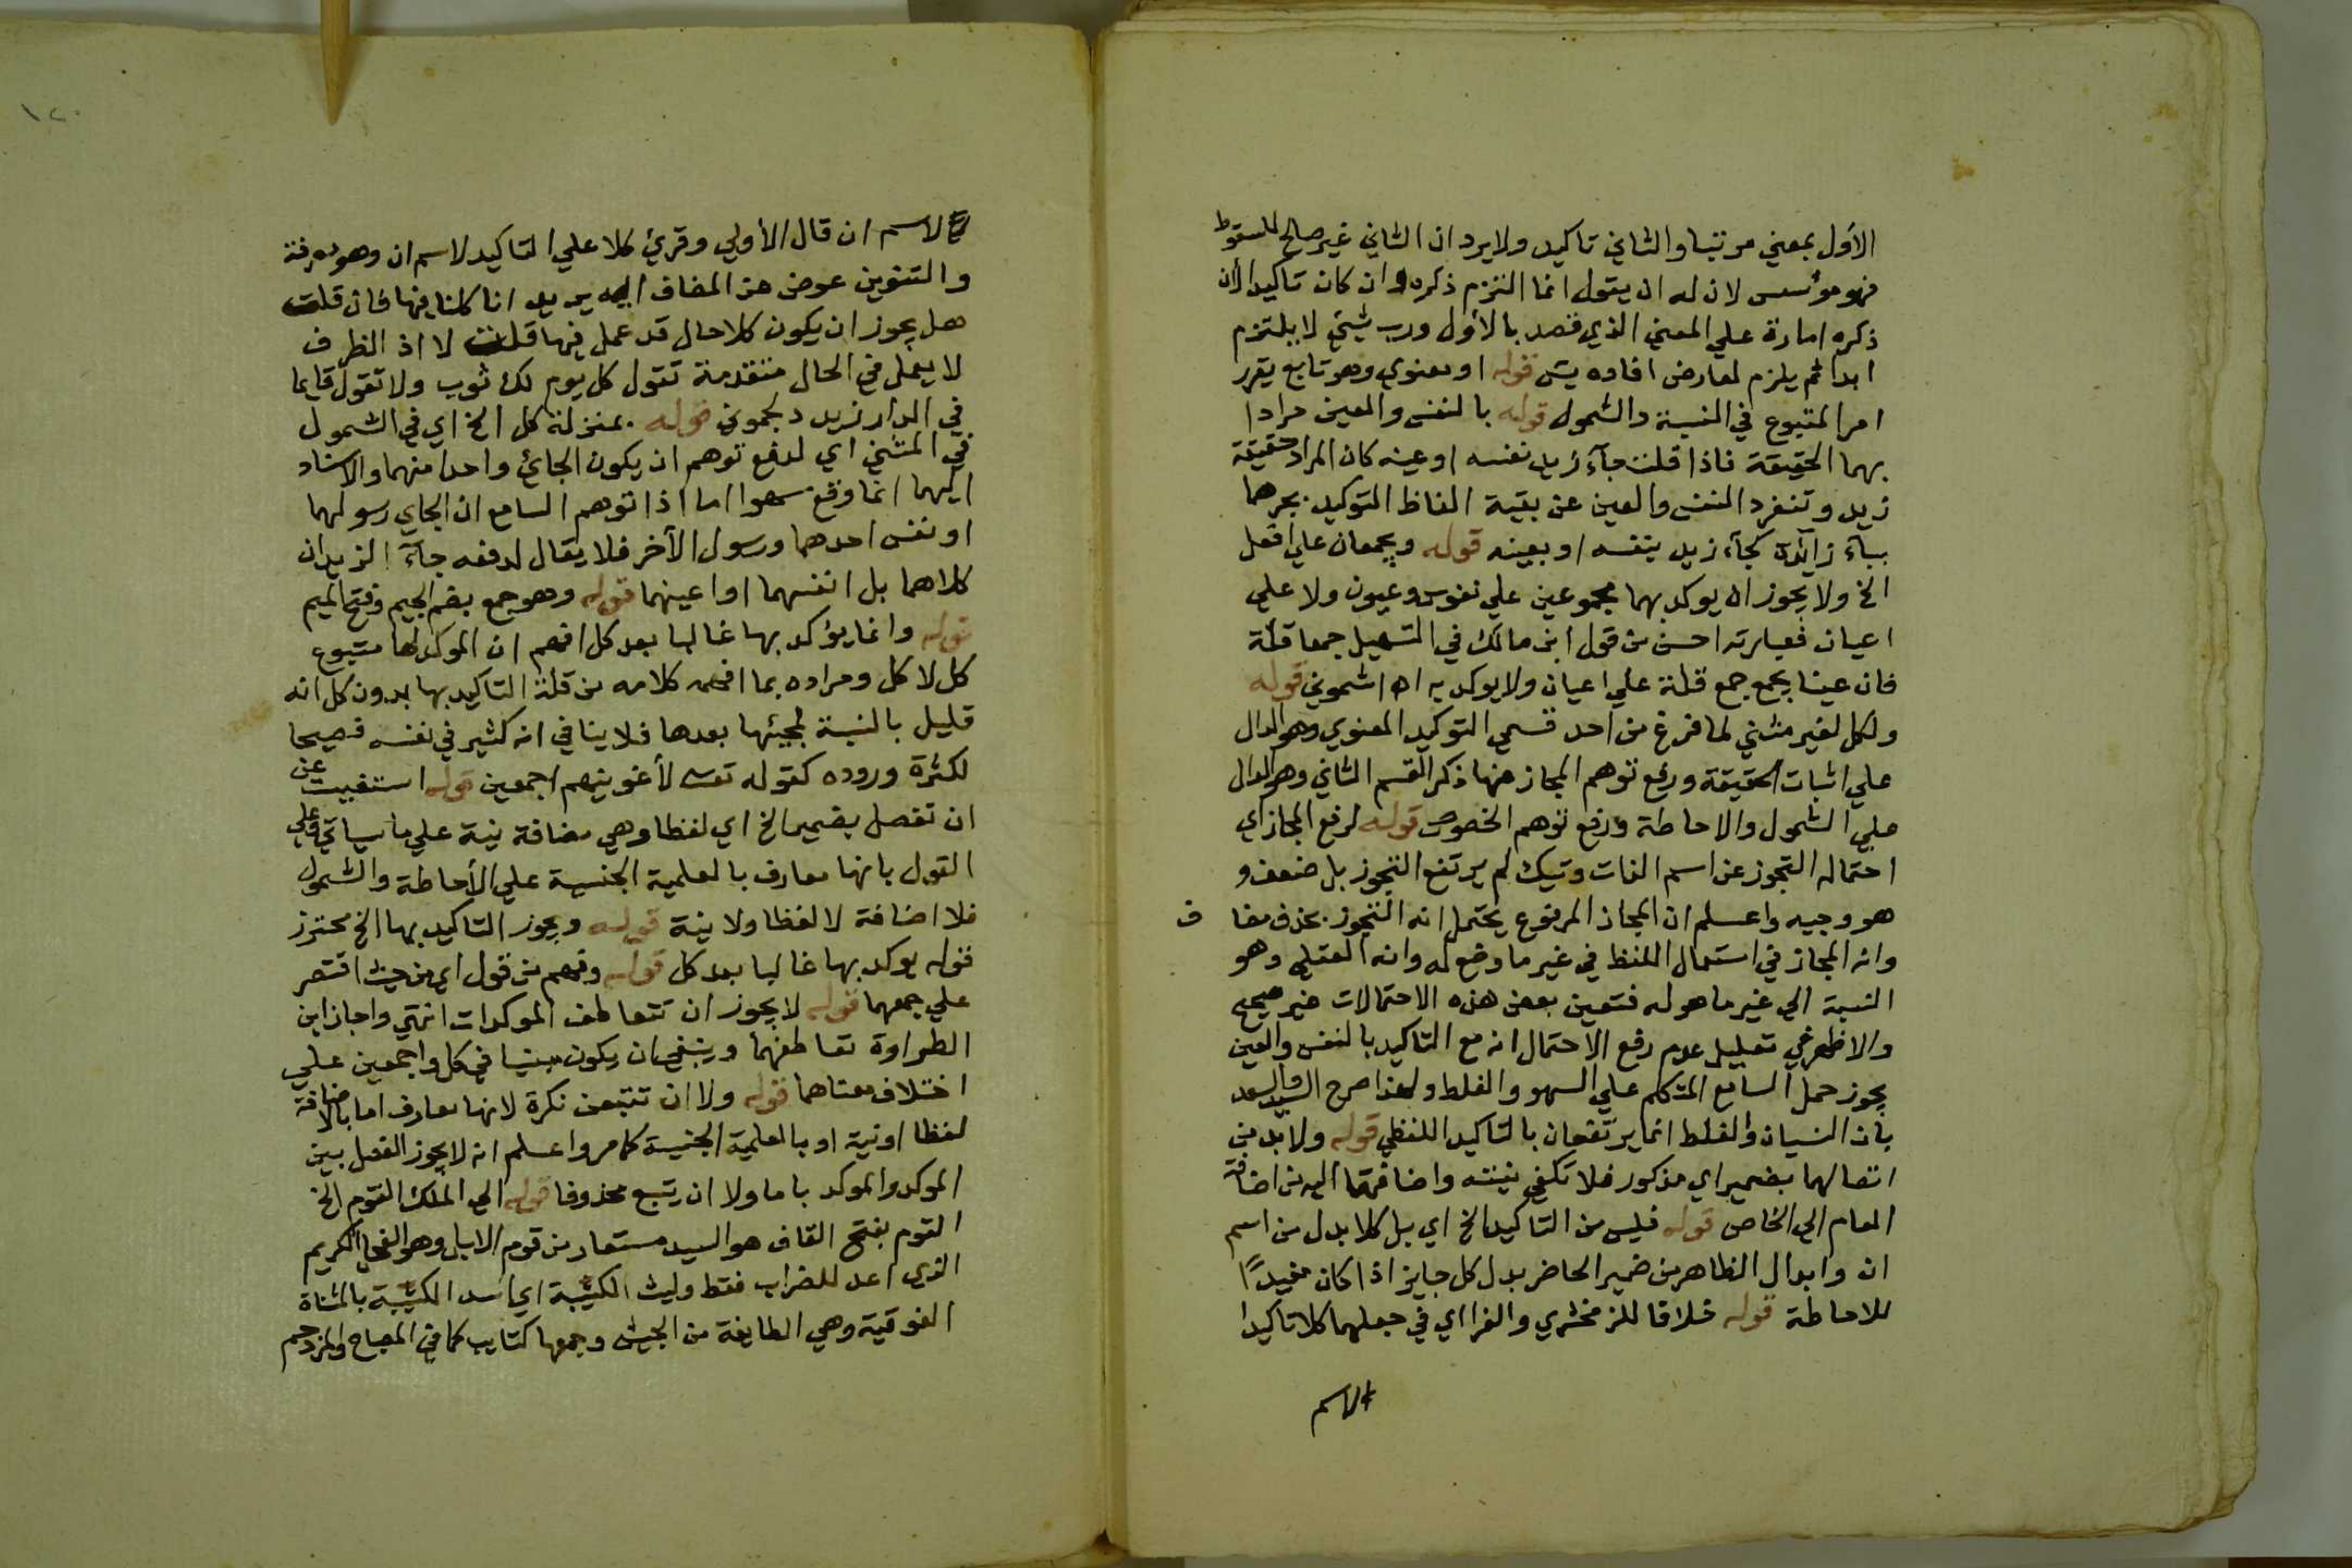 الأول بمعني مرتبا والثاني تاكيد ولا يرد ان الثاني غير صالح للسقوط
فهو مؤسس لان له ان يقول انما التزم ذكره وان كان تاكيدا لان
ذكره امارة علي المعني الذي قصد بالأول ورب شيئ لا يلتزم
ابدا ثم يلزم لعارض افاده يس قوله او معنوي وهو تابع يقرر
امر المتبوع في النسبة والشمول قوله بالنفس والعين مرادا
بهما الحقيقة فاذا قلت جآء زيد نفسه او عينه كان المراد حقيقة
زيد وتنفرد النفس والعين عن بقية الفاظ التوكيد بجرهما
ببآء زآئدة كجآء زيد بنفسه او بعينه قوله ويجمعان علي افعل
الخ ولا يجوز ان يوكد بهما مجموعين علي نفوس وعيون ولا علي
اعيان فعبارته احسن من قول ابن مالك في التسهيل جمعا قلة
فان عينا يجمع جمع قلة علي اعيان ولا يوكد به اه اشموني قوله
ولكل لغير مثني لما فرغ من احد قسمي التوكيد المعنوي وهو الدال
علي اثبات الحقيقة ورفع توهم المجاز عنها ذكر القسم الثاني وهو الدال
علي الشمول والاحاطة ورفع توهم الخصوص قوله لرفع المجاز اي
احتماله التجوز عن اسم الذات وتيك لم يرتفع التجوز بل ضعف و
هو وجيه واعلم ان المجاز المرفوع يحتمل انه التجوز بحذف مضا ف
وانه المجاز في استعمال اللفظ في غير ما وضع له وانه العقلي وهو
النسبة الي غير ما هو له فتعين بعض هذه الاحتمالات غير صحيح
والاظهر في تعليل عدم رفع الاحتمال انه مع التاكيد بالنفس والعين
يجوز حمل السامع المتكلم علي السهو والغلط ولهذا صرح السيد والسعد
بان النسيان والغلط انما يرتفعان بالتاكيد اللفظي قوله ولا بد من
اتصالها بضمير اي مذكور فلا تكفي نيته واضافتها اليه من اضافة
العام الي الخاص قوله فليس من التاكيد الخ اي بل كلا بدل من اسم
ان وابدال الظاهر من ضمير الحاضر بدل كل جايز اذا كان مفيدًا
للاحاطة قوله خلافا للزمخشري والفرا اي في جعلهما كلا تاكيدا
لاسم
١٢٠
لاسم ان قال الأولي وقرئ كلا علي التاكيد لاسم ان وهو معرفة
والتنوين عوض عن المضاف اليه يريد انا كلنا فيها فان قلت
هل يجوز ان يكون كلا حال قد عمل فيها قلت لا اذ الظرف
لا يعمل في الحال متقدمة تقول كل يوم لك ثوب ولا تقول قايما
في الدار زيد دلجموني قوله بمنزلة كل الخ اي في الشمول
في المثني اي لدفع توهم ان يكون الجائ واحدا منهما والاسناد
اليهما انما وقع سهوا اما اذا توهم السامع ان الجاي رسولهما
او نفس احدهما ورسول الأخر فلا يقال لدفعه جآء الزيدان
كلاهما بل انفسهما او اعينهما قوله وهو جمع بضم الجيم وفتح الميم
قوله وانما يؤكد بها غالبا بعد كل افهم ان الموكد لها متبوع
كل لا كل ومراده بما افهمه كلامه من قلة التاكيد بها بدون كل انه
قليل بالنسبة لمجيئها بعدها فلا ينافي انه كثير في نفسه فصيحا
لكثرة وروده كقوله تعالى لأغوينهم اجمعين قوله استغنيت عن
ان تفصل بضمير الخ اي لفظا وهي مضافة نية علي ما سياتي وعلي
القول بانها معارف بالعلمية الجنسية علي الأحاطة والشمول
فلا اضافة لا لفظا ولا نية قوله ويجوز التاكيد بها الخ محترز
قوله يوكد بها غالبا بعد كل قوله وفهم من قول اي من حيث اقتصر
علي جمعها قوله لا يجوز ان تتعاطف الموكدات انتهي واجاز ابن
الطراوة تعاطفها وينبغي ان يكون مبنيا في كل واجمعين علي
اختلاف معناهما قوله ولا ان تتبعن نكرة لانها معارف اما بالاضافة
لفظا او نية او بالعلمية الجنسية كما مر واعلم انه لا يجوز الفصل بين
الموكد والموكد باما ولا ان يتبع محذوفا قوله الي الملك القوم الخ
القوم بفتح القاف هو السيد مستعار من قوم الابل وهو الفحل الكريم
الذي اعد للضراب فقط وليث الكتيبة اي اسد الكتيبة بالمثناة
الفوقية وهي الطايفة من الجيش وجمعها كتايب كما في المصباح والمزدحم